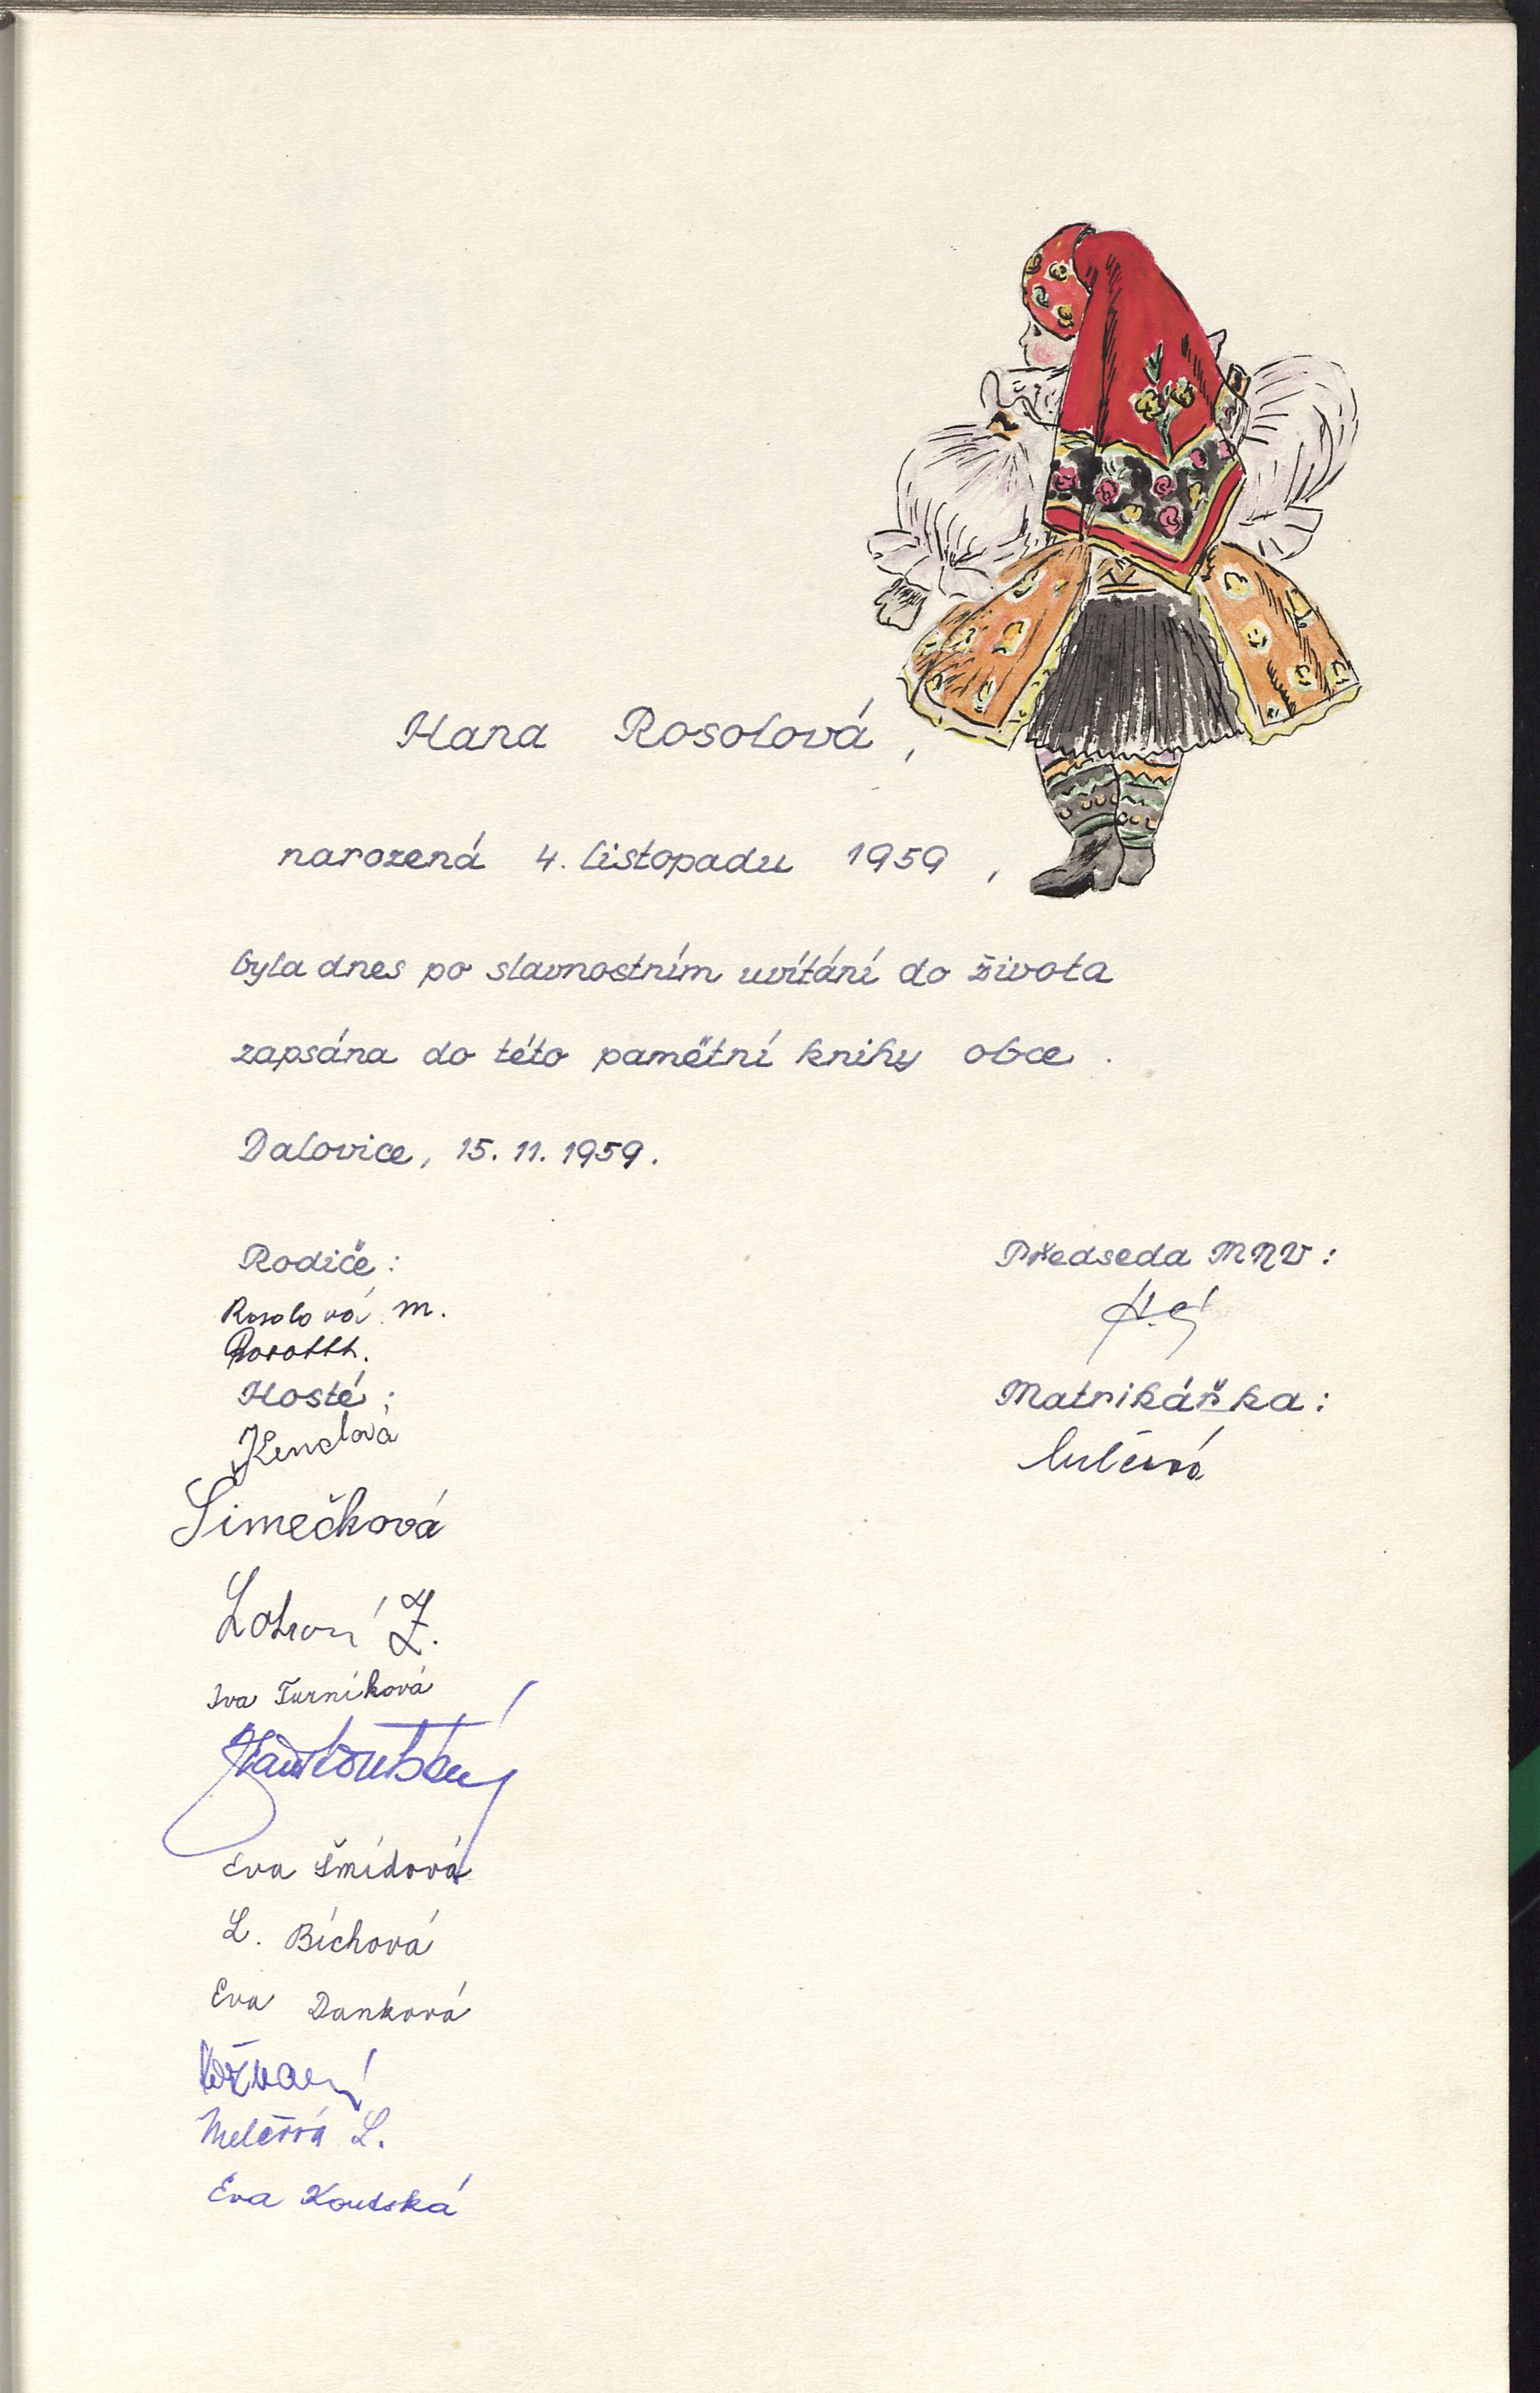 Hana Rosolová,
narozená 4. listopadu 1959,
byla dnes po slavnostním uvítání do života
zapsána do této pamětní knihy obce.
Dalovice, 15. 11. 1959.
Rodiče:
Rosolová M.
Hosté:
Kendlová
Šimečková
Z.
Iva Turníková
Eva Šmídová
L. Bíchová
Eva Danková
L.
Eva Koutská
Předseda MNV:
Matrikářka: